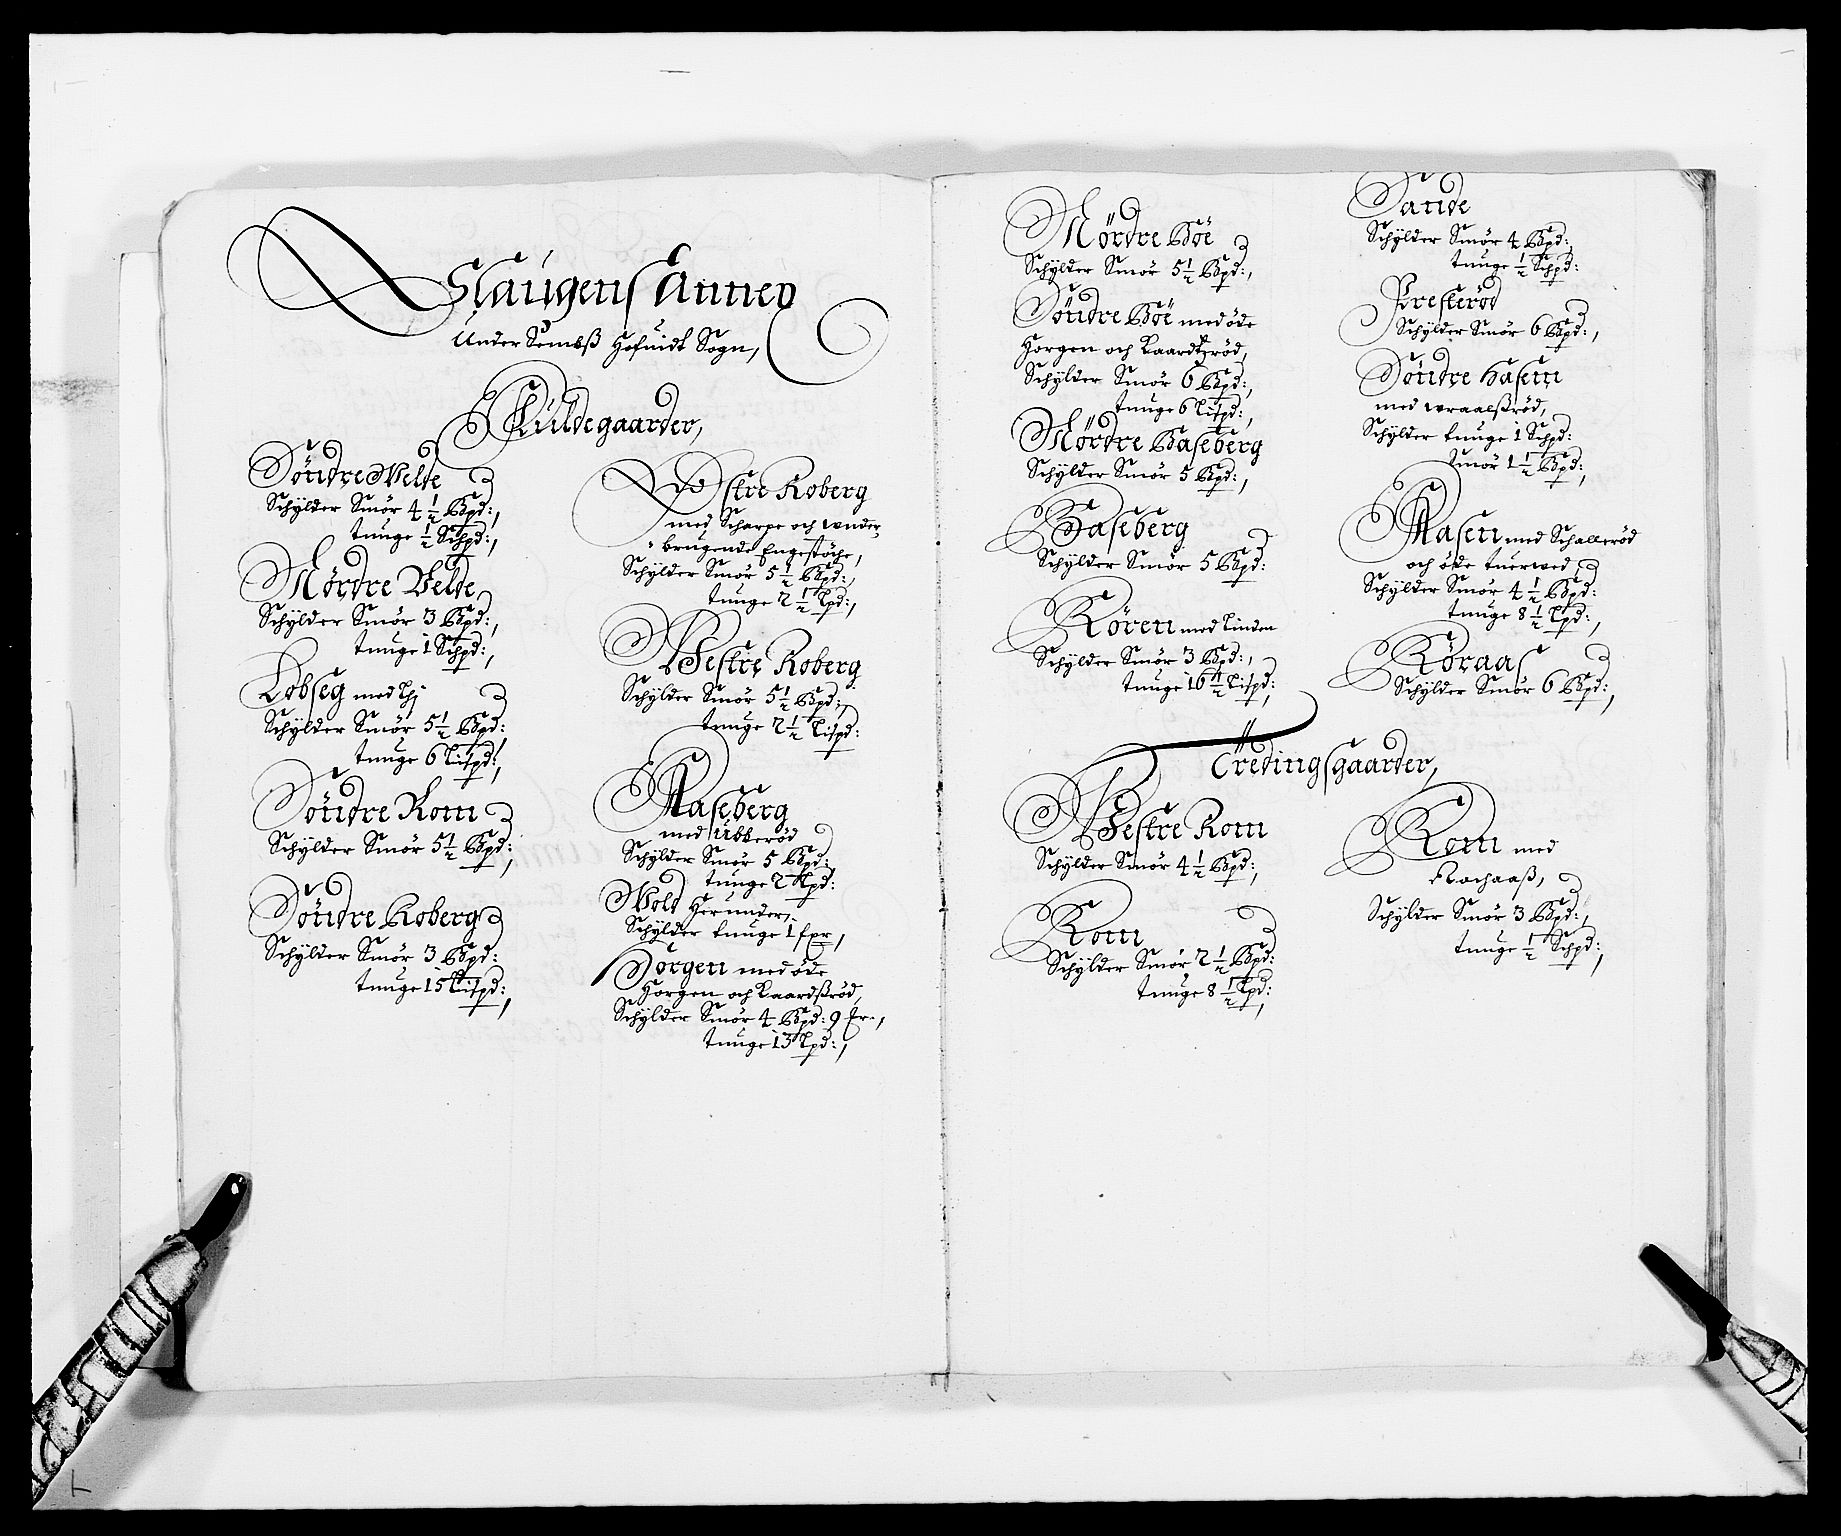 Slaugens Annex
Under Sembß Hofuidt Sogn,
Fuldegaarder,
Söndre Velle
Schÿlder Smör 4 1/2 Bpd:,
tunge 1/2 Schpd:,
Nördre Velle,
Schÿlder Smör 3 Bpd:,
tunge 1 Schpd:,
Lobseg med Lhj
Schÿlder Smör 5 1/2 Bpd:
tunge 6 Lispd:,
Söndre Rom
Schÿlder Smör 5 1/2 Bpd:,
Söndre Roberg
Schÿlder Smör 3 Bpd:
tunge 15 Lispd:,
Östre Roberg
med Scharpe och under
brugende Engestöche,
Schÿlder Smör 5 1/2 Bpd:,
tunge 2 1/2 Lpd:,
Vestre Roberg
Schÿlder Smör 5 1/2 Bpd:,
tunge 2 1/2 Lispd:
Aaseberg
med Ubberöd
Schÿlder Smör 5 Bpd:,
tunge 2 Lpd:
Wold herunder,
Schÿlder tunge 1 fxr,
Borgen med öde
Horgen och Kaardßröd,
Schÿlder Smör 4 Bpd: 9 fr.,
tunge 13 Lpd:,
Nördre Böe
Schÿlder Smör 5 1/2 Bpd:,
Söndre Böe med öde
Horgen och Kaardtzröd,
Schÿlder Smör 6 Bpd:,
tunge 6 Lispd:,
Nördre Haseberg
Schÿlder Smör 5 Bpd:,
Haseberg
Schÿlder Smör 5 Bpd:
Rören med Linden
Schÿlder Smör 3 Bpd:,
tunge 16 1/2 Lispd:,
Sande
Schÿlder Smör 4 Bpd:,
tunge 1/2 Schpd:
Presteröd
Schÿlder Smör 6 Bpd:,
Söndre Haseru
med wraalßröd,
Schÿlder tunge 1 Schpd:
Smör 1 1/2 Bpd:,
Aasen med Schalleröd
och öde tuerwed,
Schÿlder Smör 4 1/2 Bpd:
tunge 8 1/2 Lpd:,
Röraas
Schÿlder Smör 6 Bpd:,
Ödedingsgaarder,
Vestre Rom
Schÿlder Smör 4 1/2 Bpd:,
Rom
Schÿlder Smör 2 1/2 Bpd:
tunge 8 1/2 Lpd:,
Rom med
Rochaaß,
Schÿlder Smör 3 Bpd:,
tunge 1/2 Schpd:,